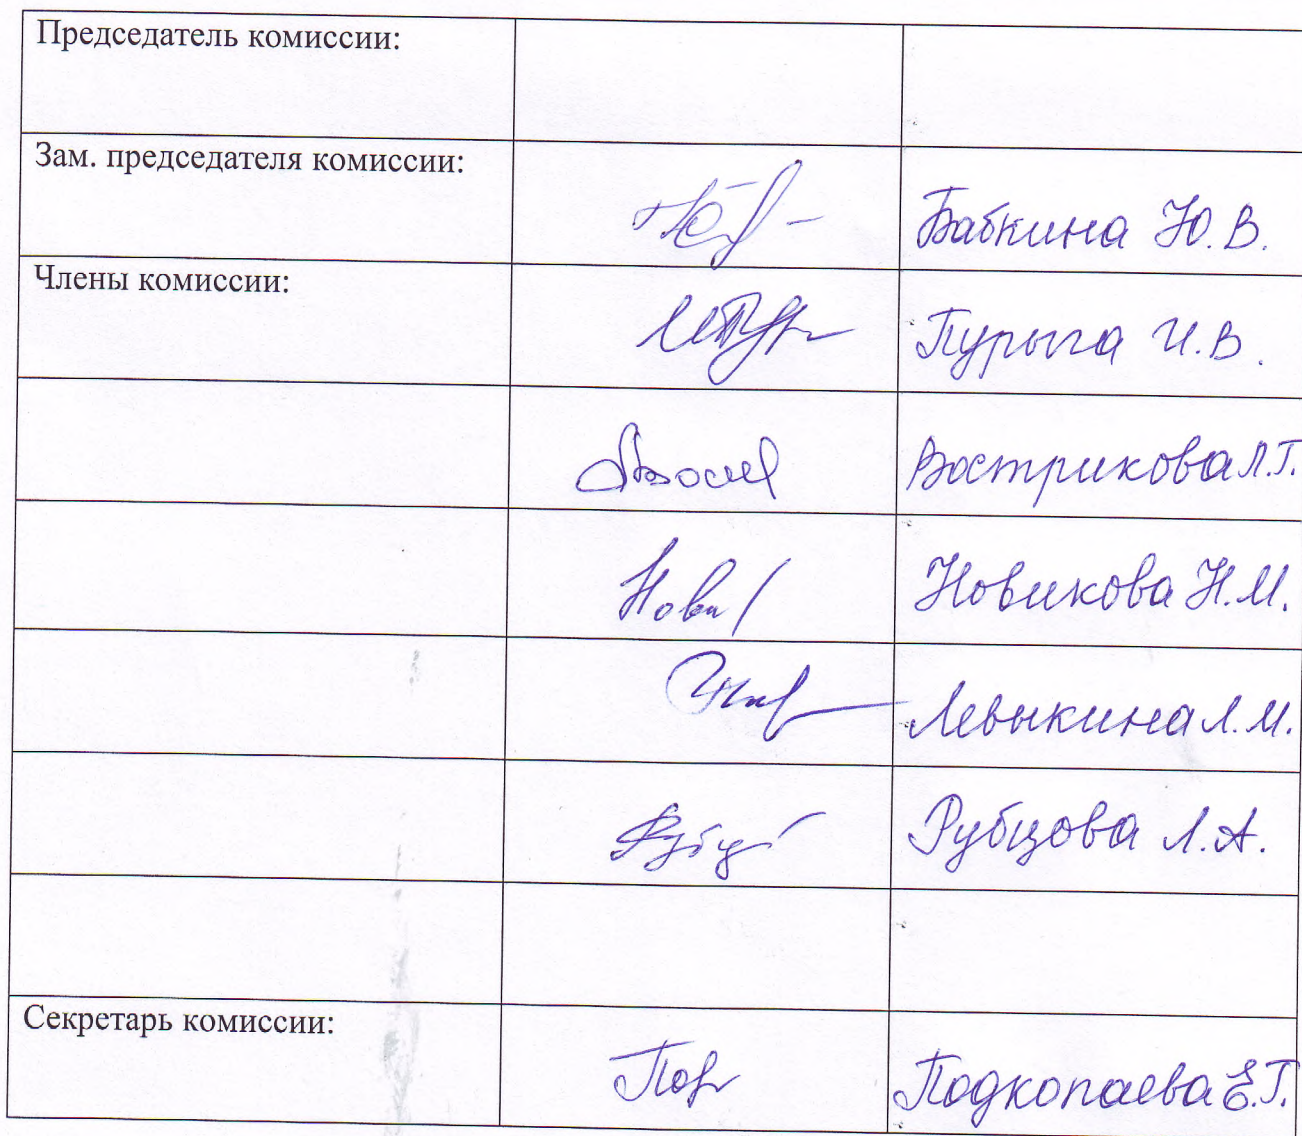 Председатель комиссии:
Зам. председателя комиссии:
Бабкина Ю. В.
Члены комиссии:
Пурыга И. В.
Вострикова Л.Г.
Новикова Н.М.
Левыкина Л.М.
Рубцова Л.А.
Секретарь комиссии:
Подкопаева Е.Г.